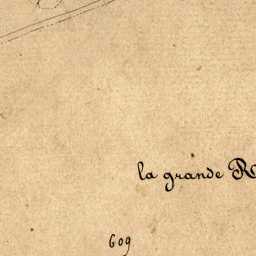 la grande
609